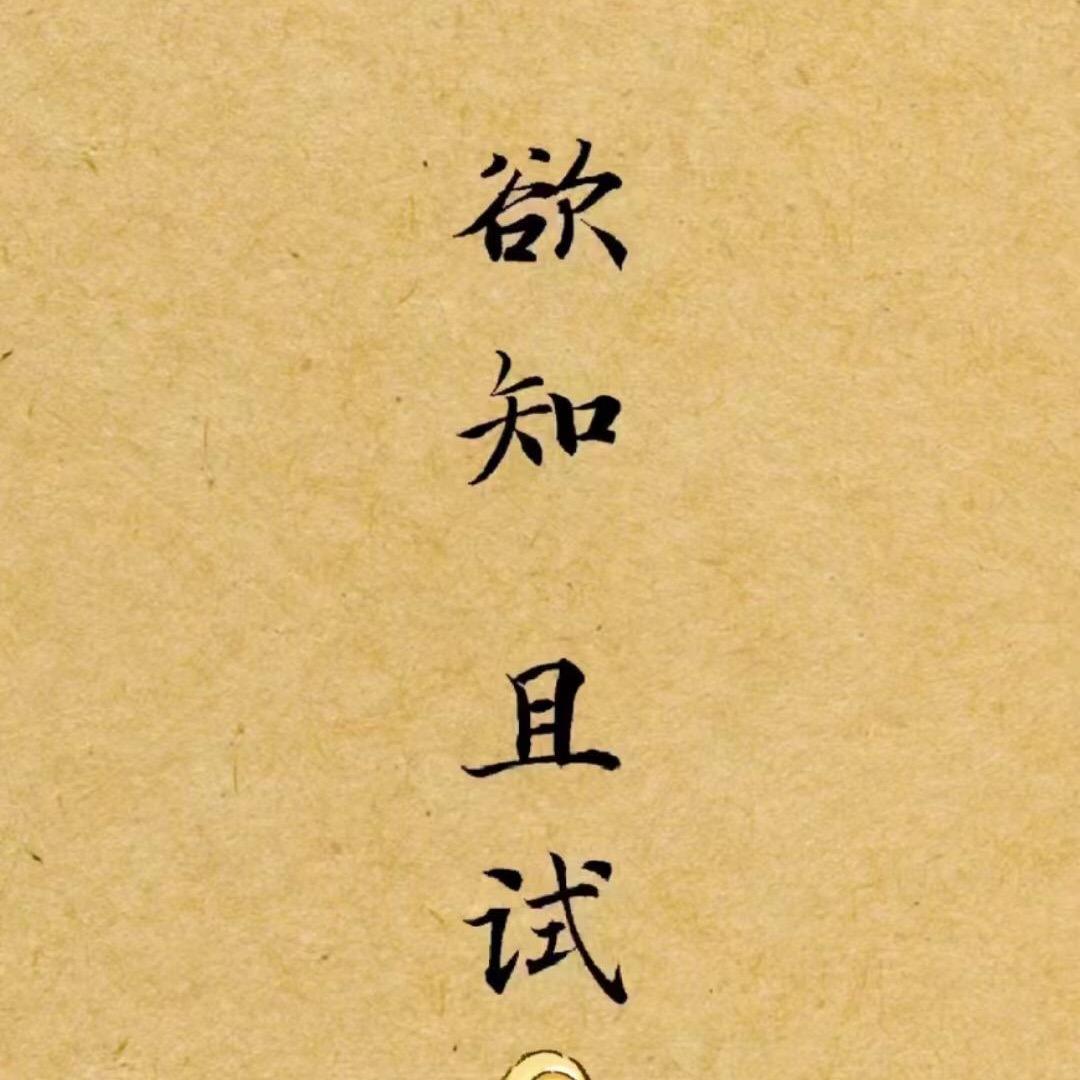 欲知
且试